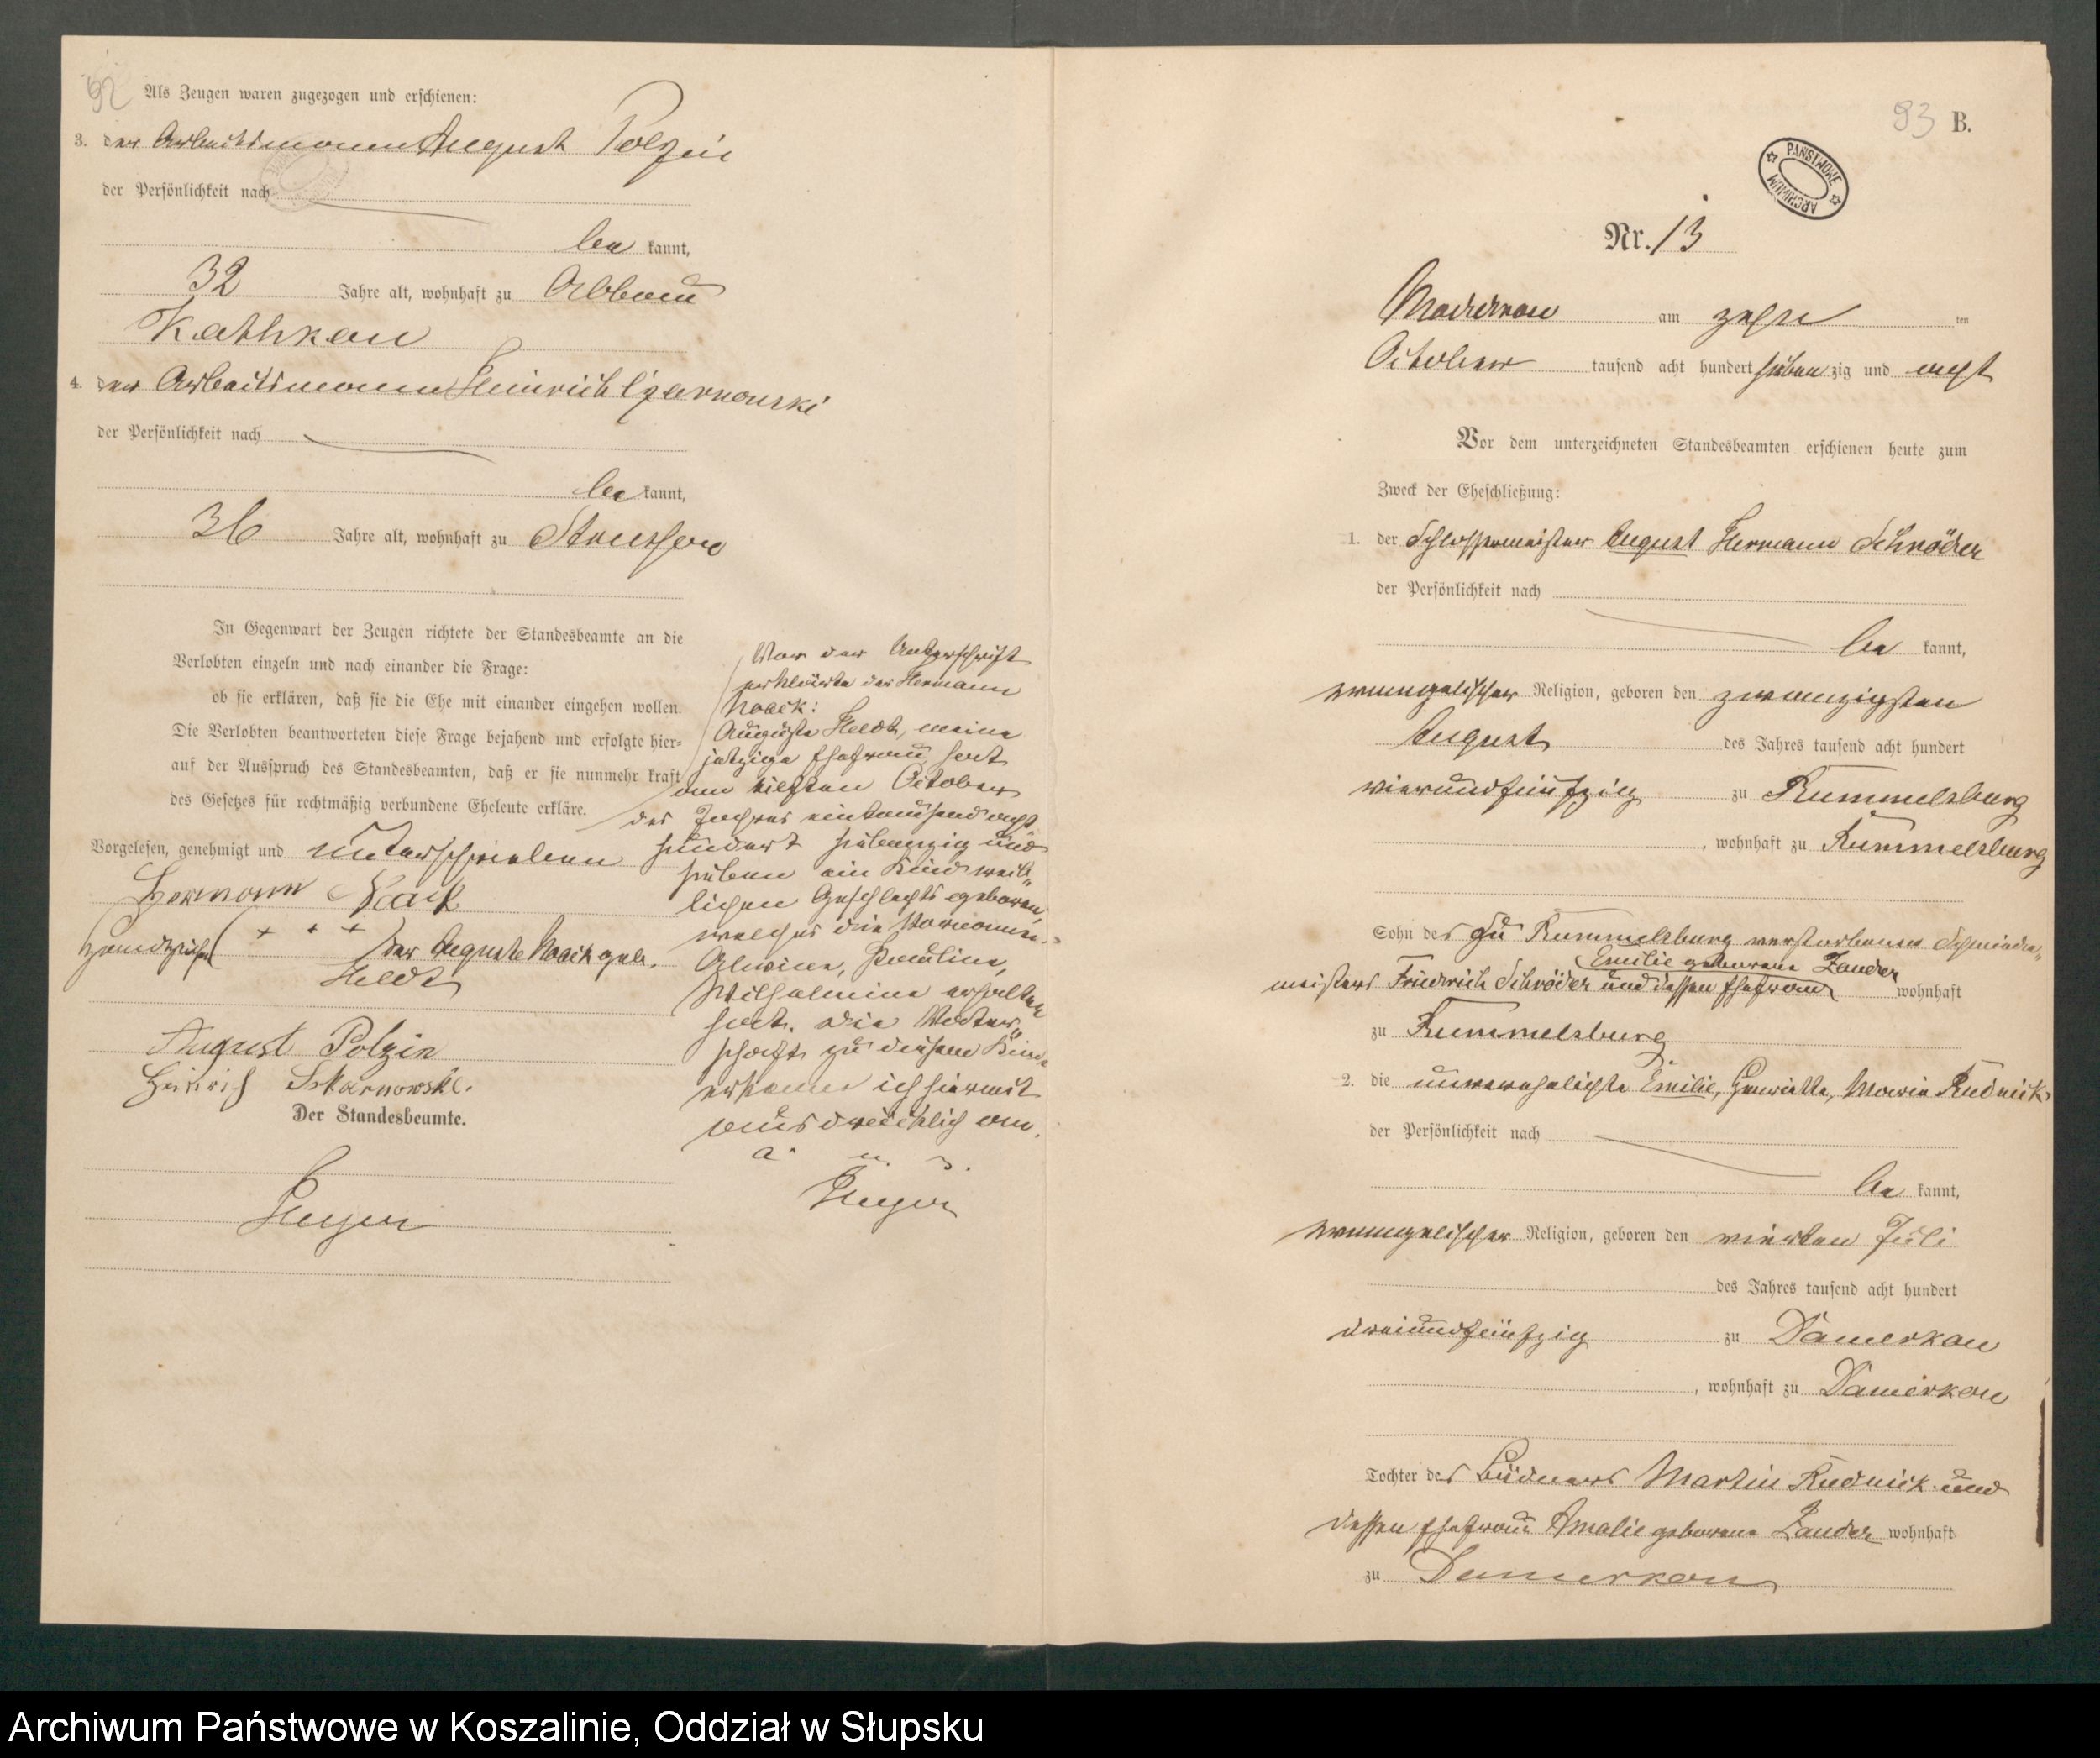 92
Als Zeugen waren zugezogen und erschienen:
3. der Arbeitsmann August Polzin
der Persönlichkeit nach
be kannt,
32 Jahre alt, wohnhaft zu Abbau
Kathkau
4. der Arbeitsmann Heinrich Czarnowski
der Persönlichkeit nach
be kannt,
36 Jahre alt, wohnhaft zu Streussow
In Gegenwart der Zeugen richtete der Standesbeamte an die
Verlobten einzeln und nach einander die Frage:
ob sie erklären, daß sie die Ehe mit einander eingehen wollen.
Die Verlobten beantworteten diese Frage bejahend und erfolgte hier-
auf der Ausspruch des Standesbeamten, daß er sie nunmehr kraft
des Gesetzes für rechtmäßig verbundene Eheleute erkläre.
Vorgelesen, genehmigt und unterschrieben
Hermann Noack
Handzeichen ( + + + der Auguste Noack geb.
Heldt
August Polzin
Heinrich
Der Standesbeamte.
Vor der Unterschrift
erklärte der Hermann
Noack:
Auguste Heldt, meine
jetzige Ehefrau, hat
am elften October
des Jahres eintausend acht
hundert siebenzig und
sieben ein Kind weib-
lichen Geschlechts geboren,
welches die Vornamen
Alwine, Pauline,
Wilhelmine erhalten
hat. Die Vater-
schaft zu diesem Kinde
erkenne ich hiermit
ausdrücklich an.
a. u. s.
93 B.
PAŃSTWOWE ARCHIWUM
Nr. 13
am zehn ten
October tausend acht hundert sieben zig und acht
Vor dem unterzeichneten Standesbeamten erschienen heute zum
Zweck der Eheschließung:
1. der Schlossermeister August Hermann Schröder
der Persönlichkeit nach
be kannt,
evangelischer Religion, geboren den zwanzigsten
August des Jahres tausend acht hundert
vierundfünfzig zu Rummelsburg
, wohnhaft zu Rummelsburg
Sohn des zu Rummelsburg verstorbenen Schmiede-
Emilie geborene Zander
meisters Friedrich Schröder und dessen Ehefrau wohnhaft
zu Rummelsburg
2. die unverehelichte Emilie, Henriette, Marie Rudnick
der Persönlichkeit nach
be kannt,
evangelischer Religion, geboren den vierten Juli
des Jahres tausend acht hundert
dreiundfünfzig zu Damerkau
, wohnhaft zu Damerkau
Tochter des Büdners Martin Rudnick und
dessen Ehefrau Amalie geborene Zander wohnhaft
zu Damerkau
Archiwum Państwowe w Koszalinie, Oddział w Słupsku